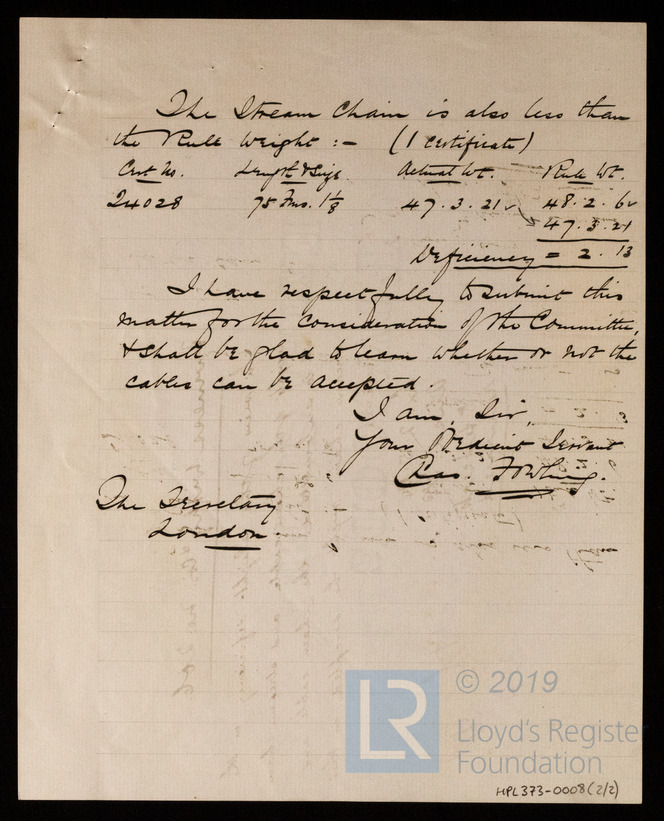 The Stream Chain is also less than
the Rule Weight :- (1 certificate)
Cert No. Length & Size. Actual Wt. Rule Wt.
24028 75 Fms. 1 1/8 47.3.21 48.2.6
47.3.21
Deficiency = 2.13
I have respectfully to submit this
matter for the consideration of the Committee,
& shall be glad to learn whether or not the
cables can be accepted.
I am, Sir,
Your Obedient Servant
Chas. Fowling.
The Secretary
London
LR
© 2019
Lloyd's Register
Foundation
HPL373-0008(2/2)